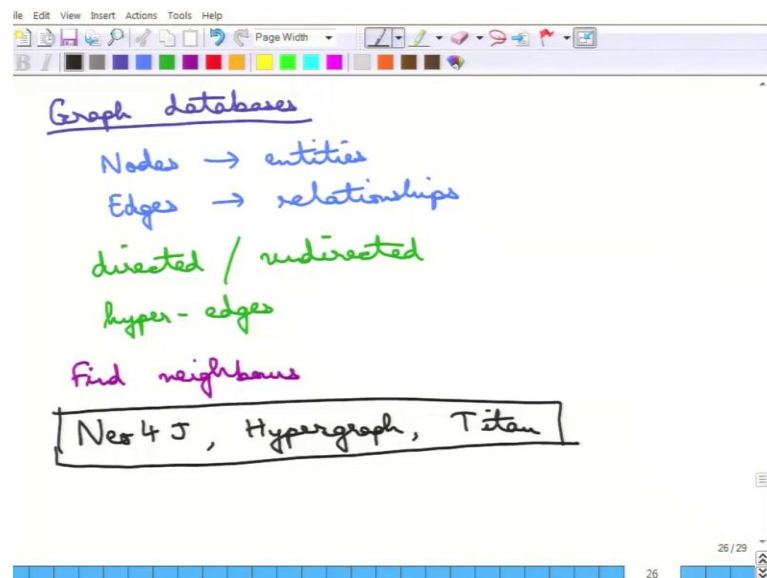 ile Edit View Insert Actions Tools Help
Page Width
B I
Graph databases
Nodes → entities
Edges → relationships
directed / undirected
hyper-edges
Find neighbours
Neo4J, Hypergraph, Titan
26/29
26